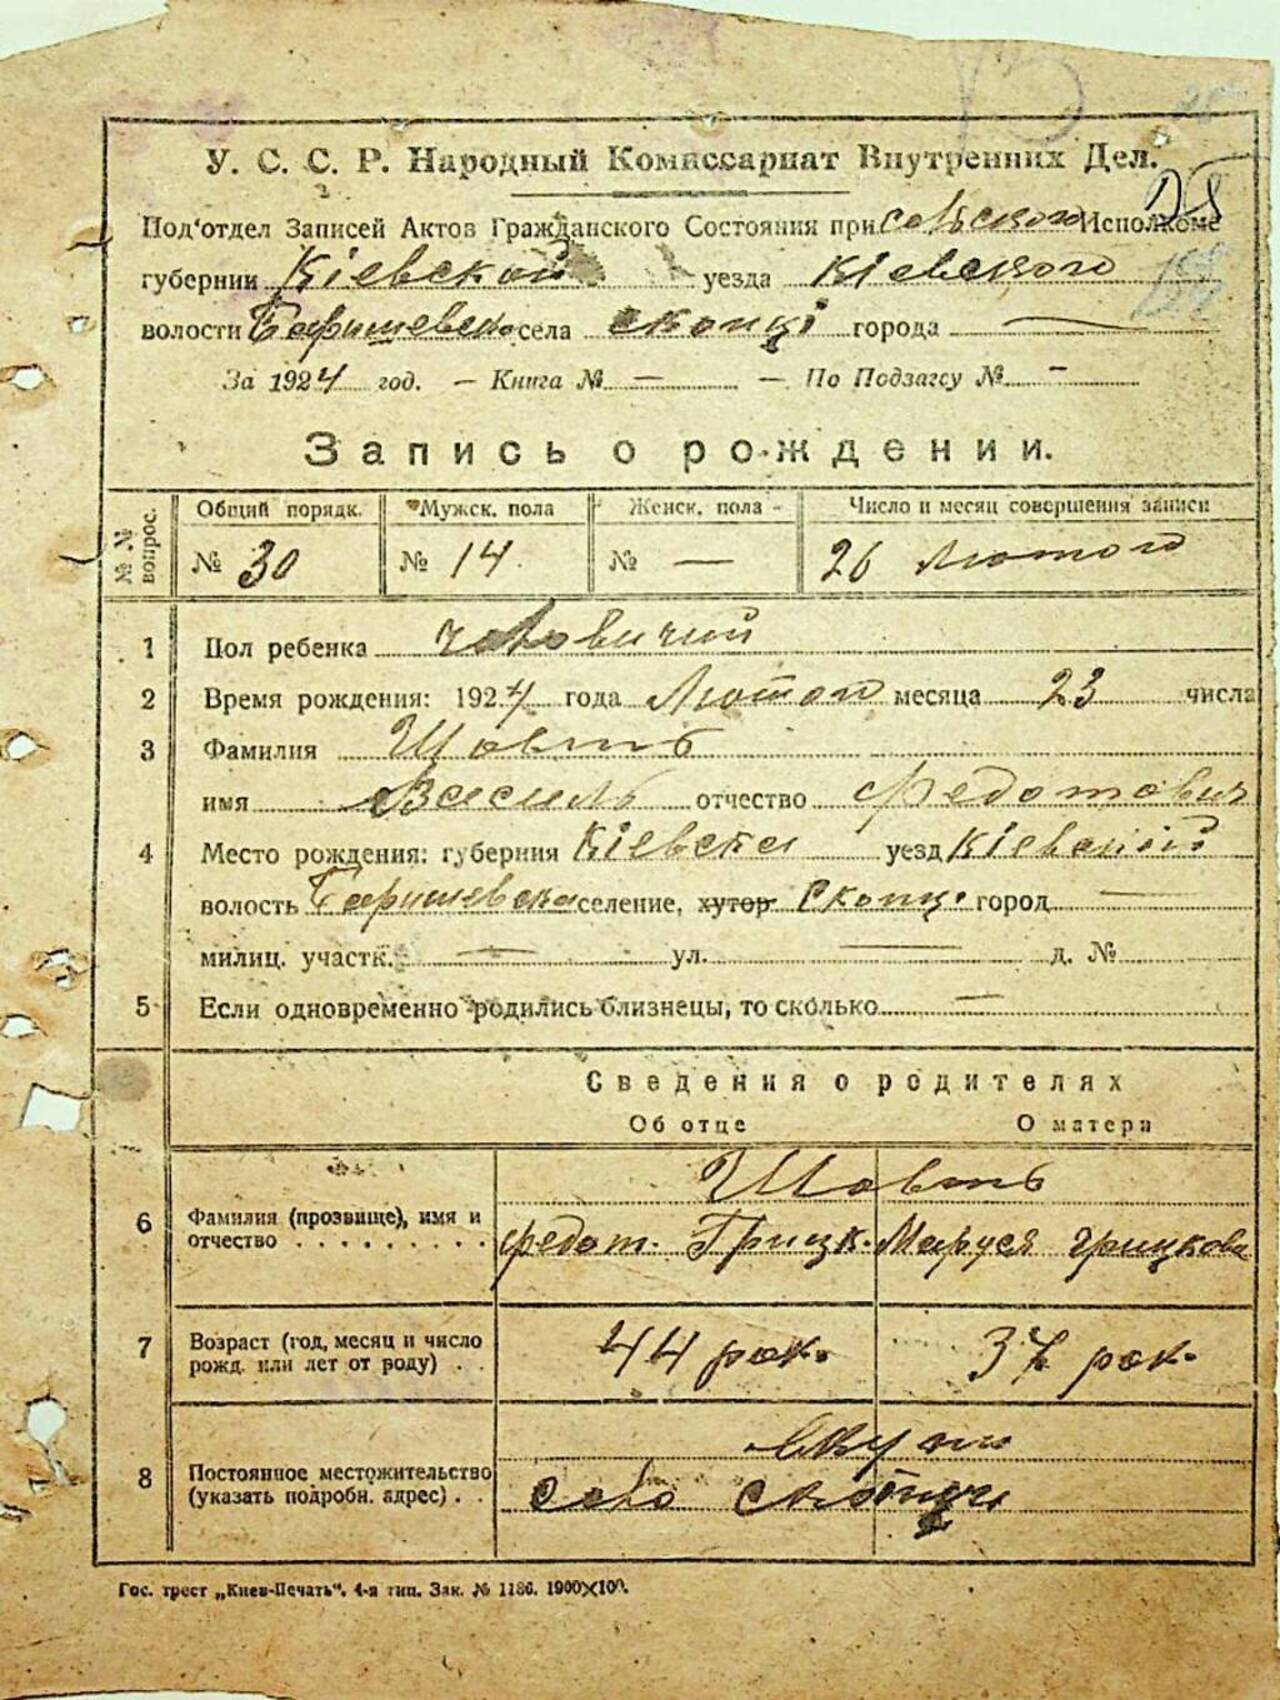 У. С. С. Р. Народный Комиссариат Внутренних Дел.
Под'отдел Записей Актов Гражданского Состояния при сельского Исполкоме
губернии Кіевской уезда Кіевского
волости Баришевско села Скопці города —
За 1924 год. — Книга № — — По Подзагсу № -
Запись о рождении.
№ № вопрос.
Общий порядк. Мужск. пола Женск. пола Число и месяц совершения записи
№ 30 № 14. № — 26 Лютого
1 Пол ребенка чоловичий
2 Время рождения: 1924 года Лютого месяца 23 числа
3 Фамилия Шовть
имя Василь отчество Федотович
4 Место рождения: губерния Кіевска уезд Кіевский
волость Баришевска селение, хутор Скопці город —
милиц. участк. — ул. — д. №
5 Если одновременно родились близнецы, то сколько —
Сведения о родителях
Об отце О матери
Шовть
6 Фамилия (прозвище), имя и
отчество . . . . . . . . . Федот. Грицк. Маруся Грицкова
7 Возраст (год, месяц и число
рожд. или лет от роду) . . 44 рок. 37 рок.
вкупі
8 Постоянное местожительство
(указать подробн. адрес) . . село Скопци
Гос. трест „Киев-Печать“. 4-я тип. Зак. № 1186. 1900×100.